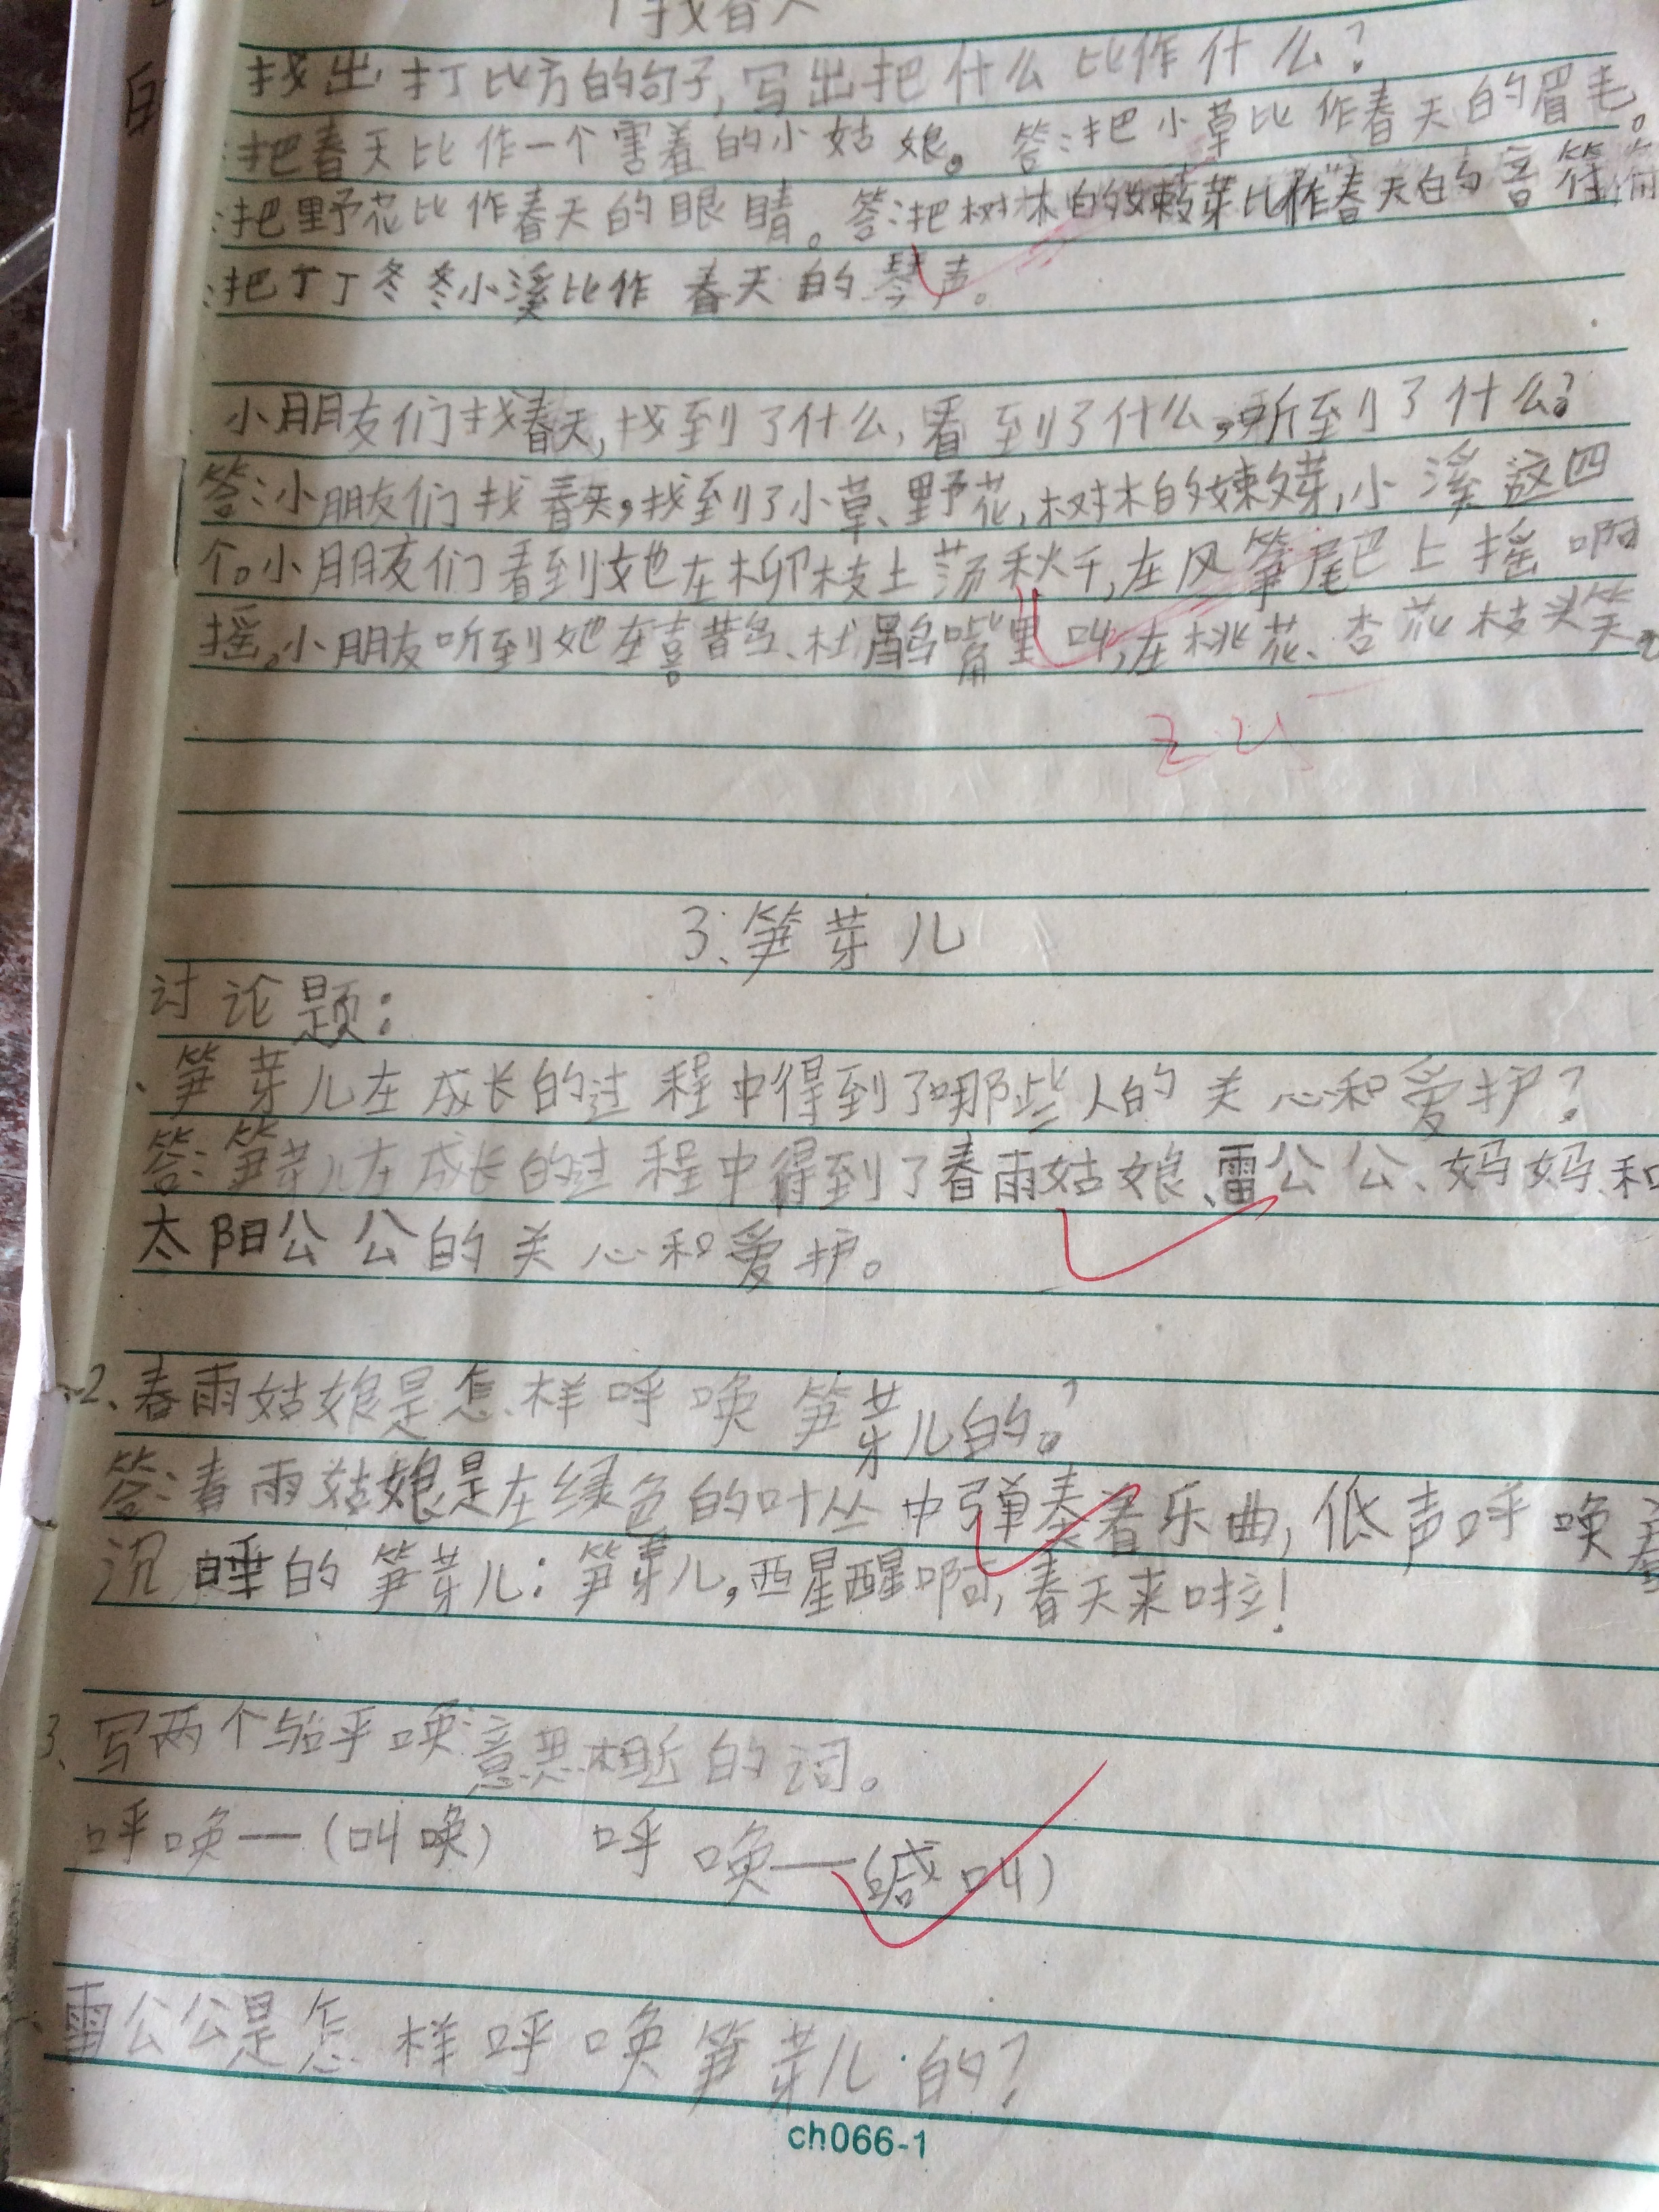 找春天
找出打比方的句子,写出把什么比作什么?
:把春天比作一个害羞的小姑娘。答:把小草比作春天的眉毛。
:把野花比作春天的眼睛。答:把树木的嫩芽比作春天的音符
:把丁丁冬冬小溪比作春天的琴声。
小朋友们找春天,找到了什么,看到了什么,听到了什么?
答:小朋友们找春天,找到了小草、野花,树木的嫩芽,小溪这四
个。小朋友们看到她在柳枝上荡秋千,在风筝尾巴上摇啊
摇。小朋友听到她在喜鹊、杜鹃嘴里叫,在桃花、杏花枝头笑。
3、笋芽儿
讨论题:
、笋芽儿在成长的过程中得到了哪些人的关心和爱护?
答:笋芽儿在成长的过程中得到了春雨姑娘、雷公公、妈妈和
太阳公公的关心和爱护。
2、春雨姑娘是怎样呼唤笋芽儿的?
答:春雨姑娘是在绿色的叶丛中弹奏着乐曲,低声呼唤着
沉睡的笋芽儿:笋芽儿,醒醒啊,春天来啦!
3、写两个与呼唤意思相近的词。
呼唤—(叫唤) 呼唤—(喊叫)
雷公公是怎样呼唤笋芽儿的?
ch066-1